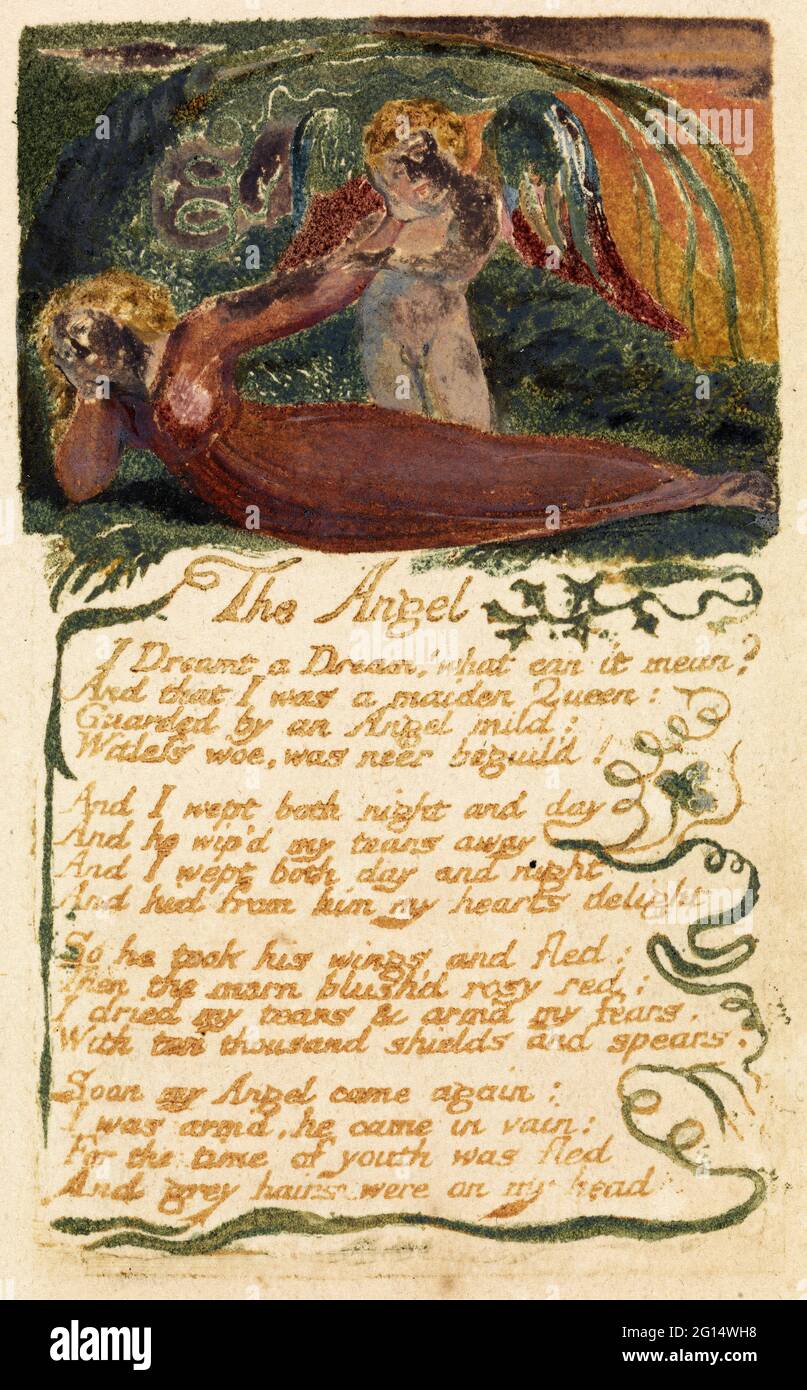 The Angel
I Dreamt a Dream! what can it mean?
And that I was a maiden Queen:
Guarded by an Angel mild:
Witless woe, was neer beguil'd!
And I wept both night and day
And he wip'd my tears away
And I wept both day and night
And hid from him my hearts delight
So he took his wings and fled:
Then the morn blush'd rosy red:
I dried my tears & armd my fears.
With ten thousand shields and spears.
Soon my Angel came again:
I was arm'd, he came in vain:
For the time of youth was fled
And grey hairs were on my head
alamy
alamy
Image ID: 2G14WH8
www.alamy.com